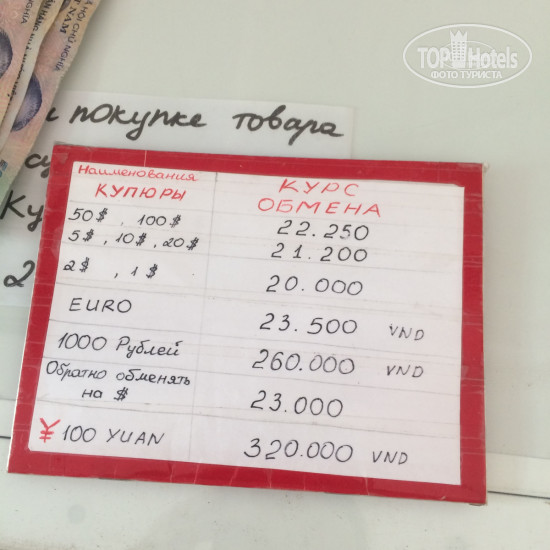 ХÃ HỘI CHỦ NGHĨA
T NAM
TOPHotels
ФОТО ТУРИСТА
и покупке товара
Наименования
КУПЮРЫ
КУРС
ОБМЕНА
50$ , 100$ 22.250
5$, 10$, 20$ 21.200
2$ , 1$ 20.000
EURO 23.500 VND
1000 Рублей 260.000 VND
Обратно обменять
на $ 23.000
¥ 100 YUAN 320.000 VND